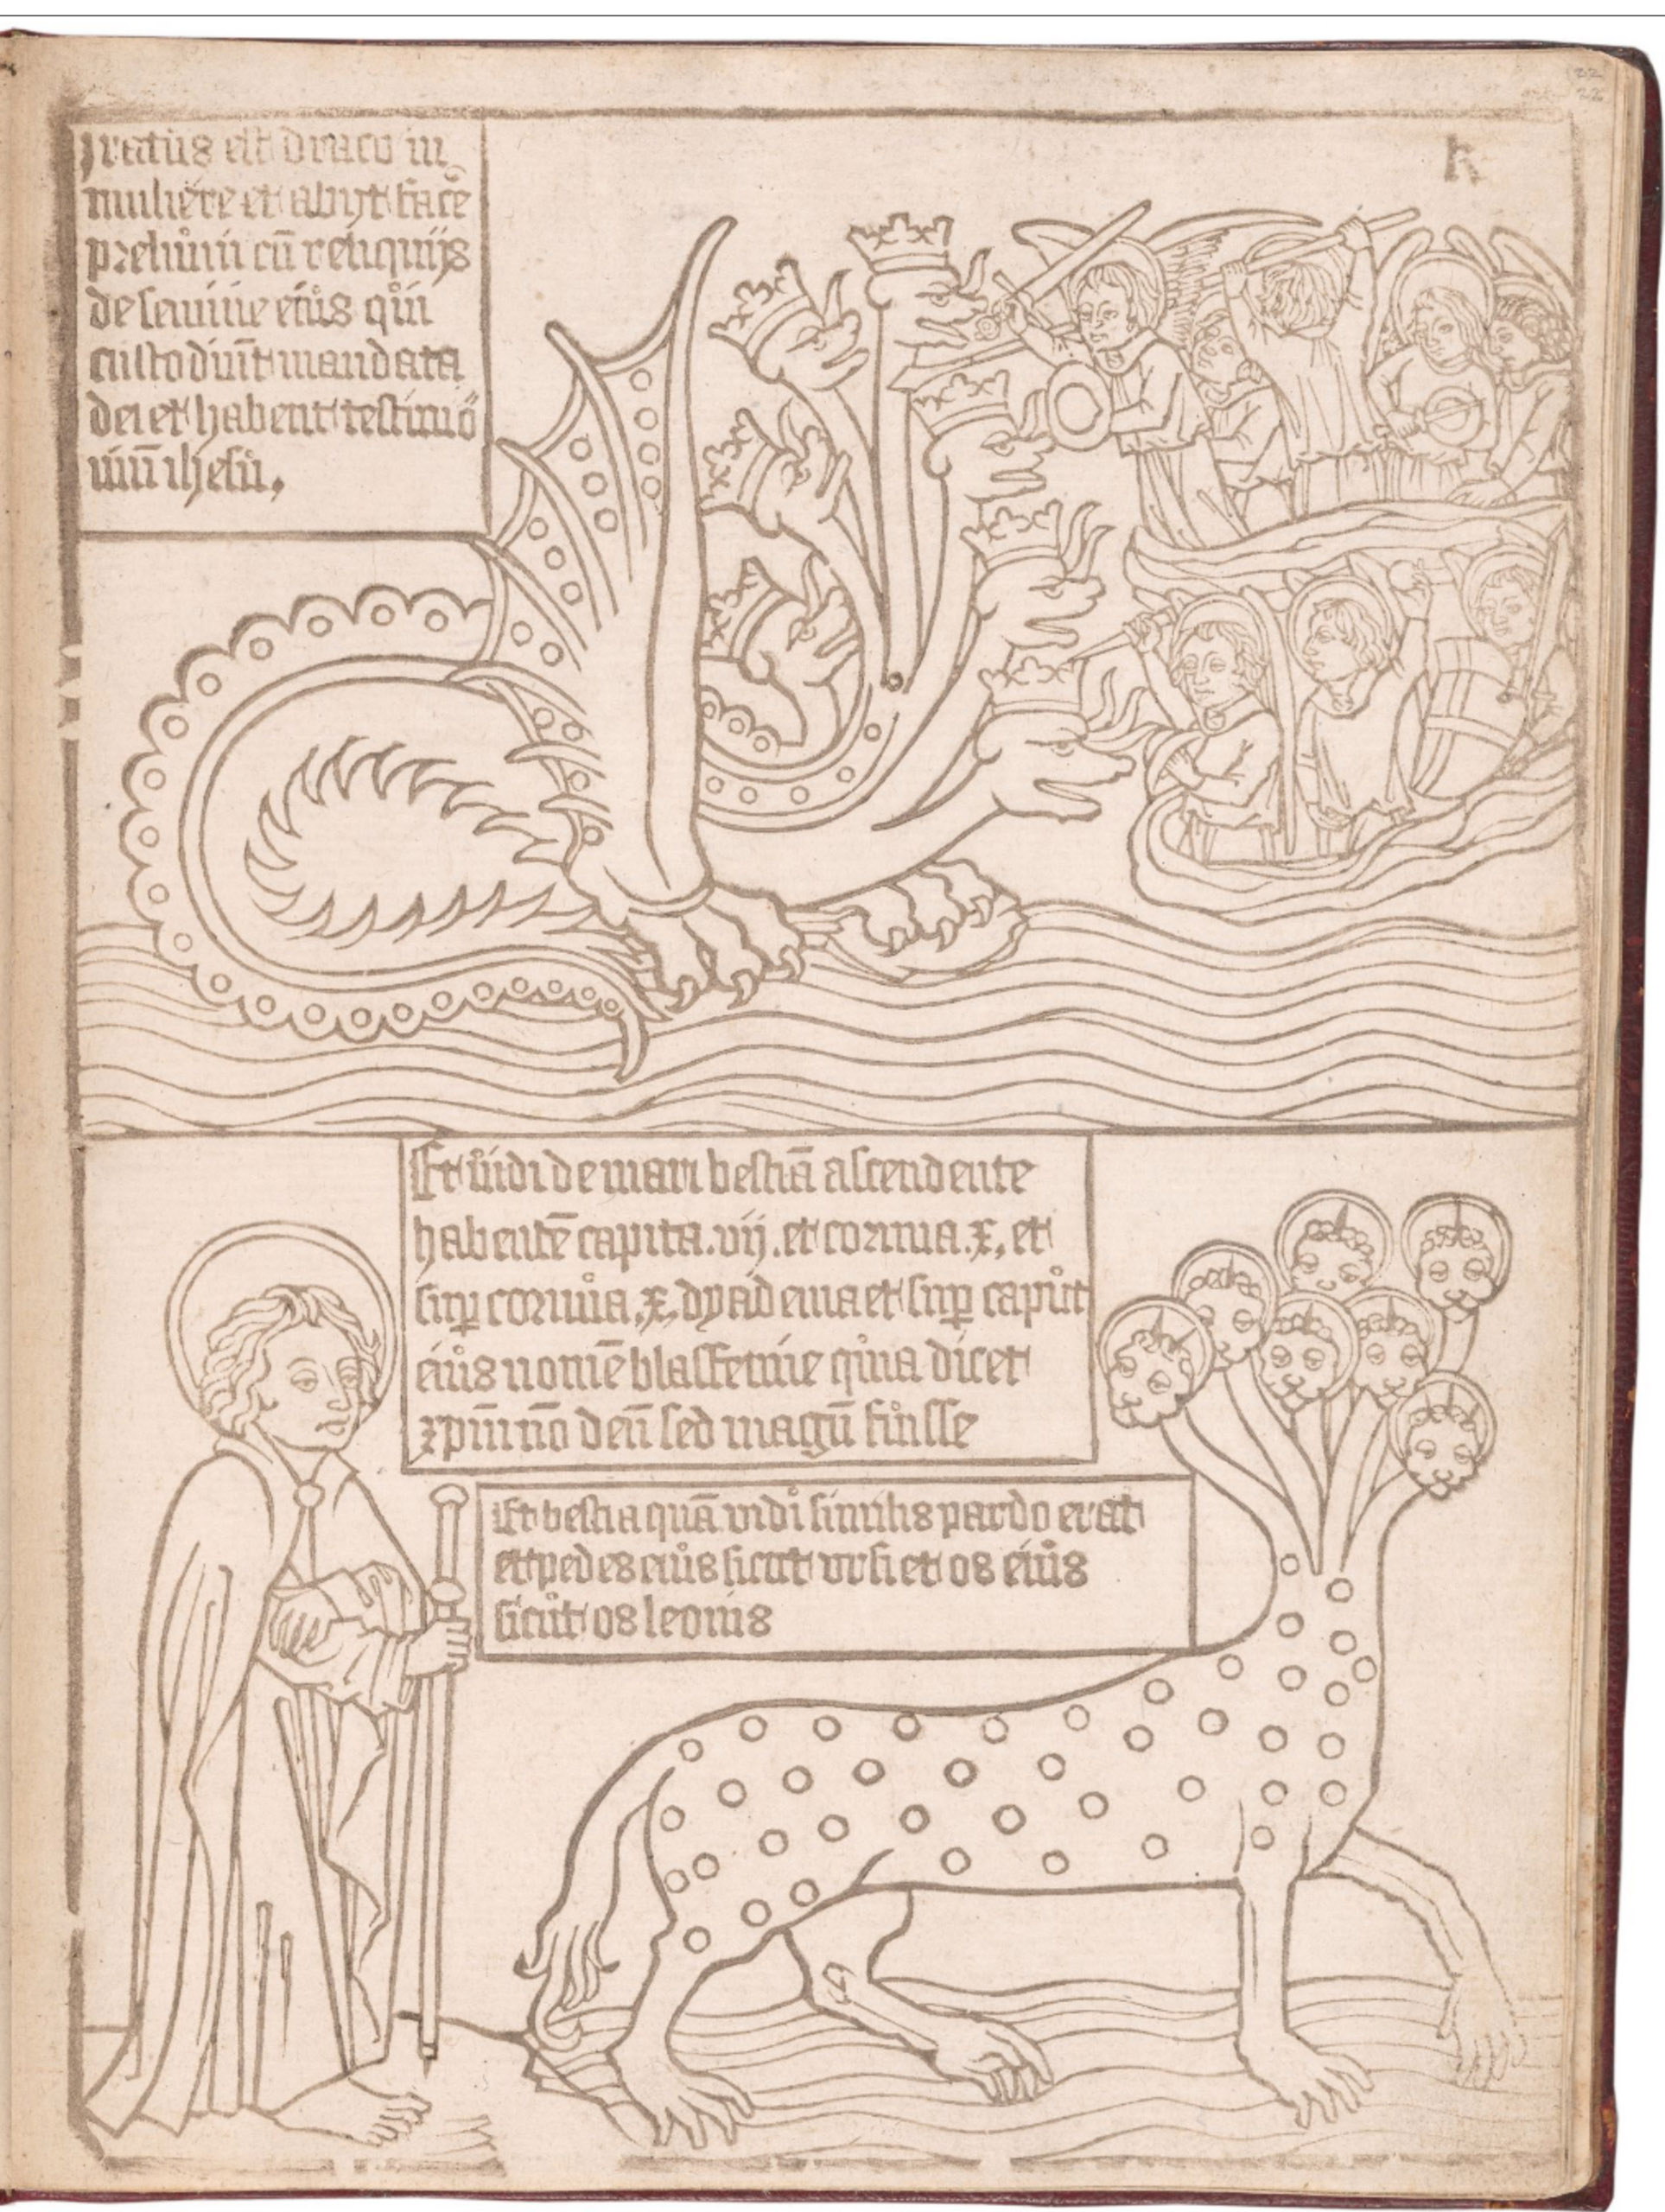 Iratus est draco in
muliere et abyt facē
prelium cū reliquijs
de semine eius qui
custodiūt mandata
dei et habent testimō
ium ihesu.
k
Et vidi de mari bestiā ascendente
habentē capita .vij. et cornua .x. et
sup cornua .x. dyadema et sup caput
eius nomē blasfemie quia dicet
xpm nō deū sed magū fuisse
Et bestia quā vidi similis pardo erat
et pedes eius sicut vrsi et os eius
sicut os leonis